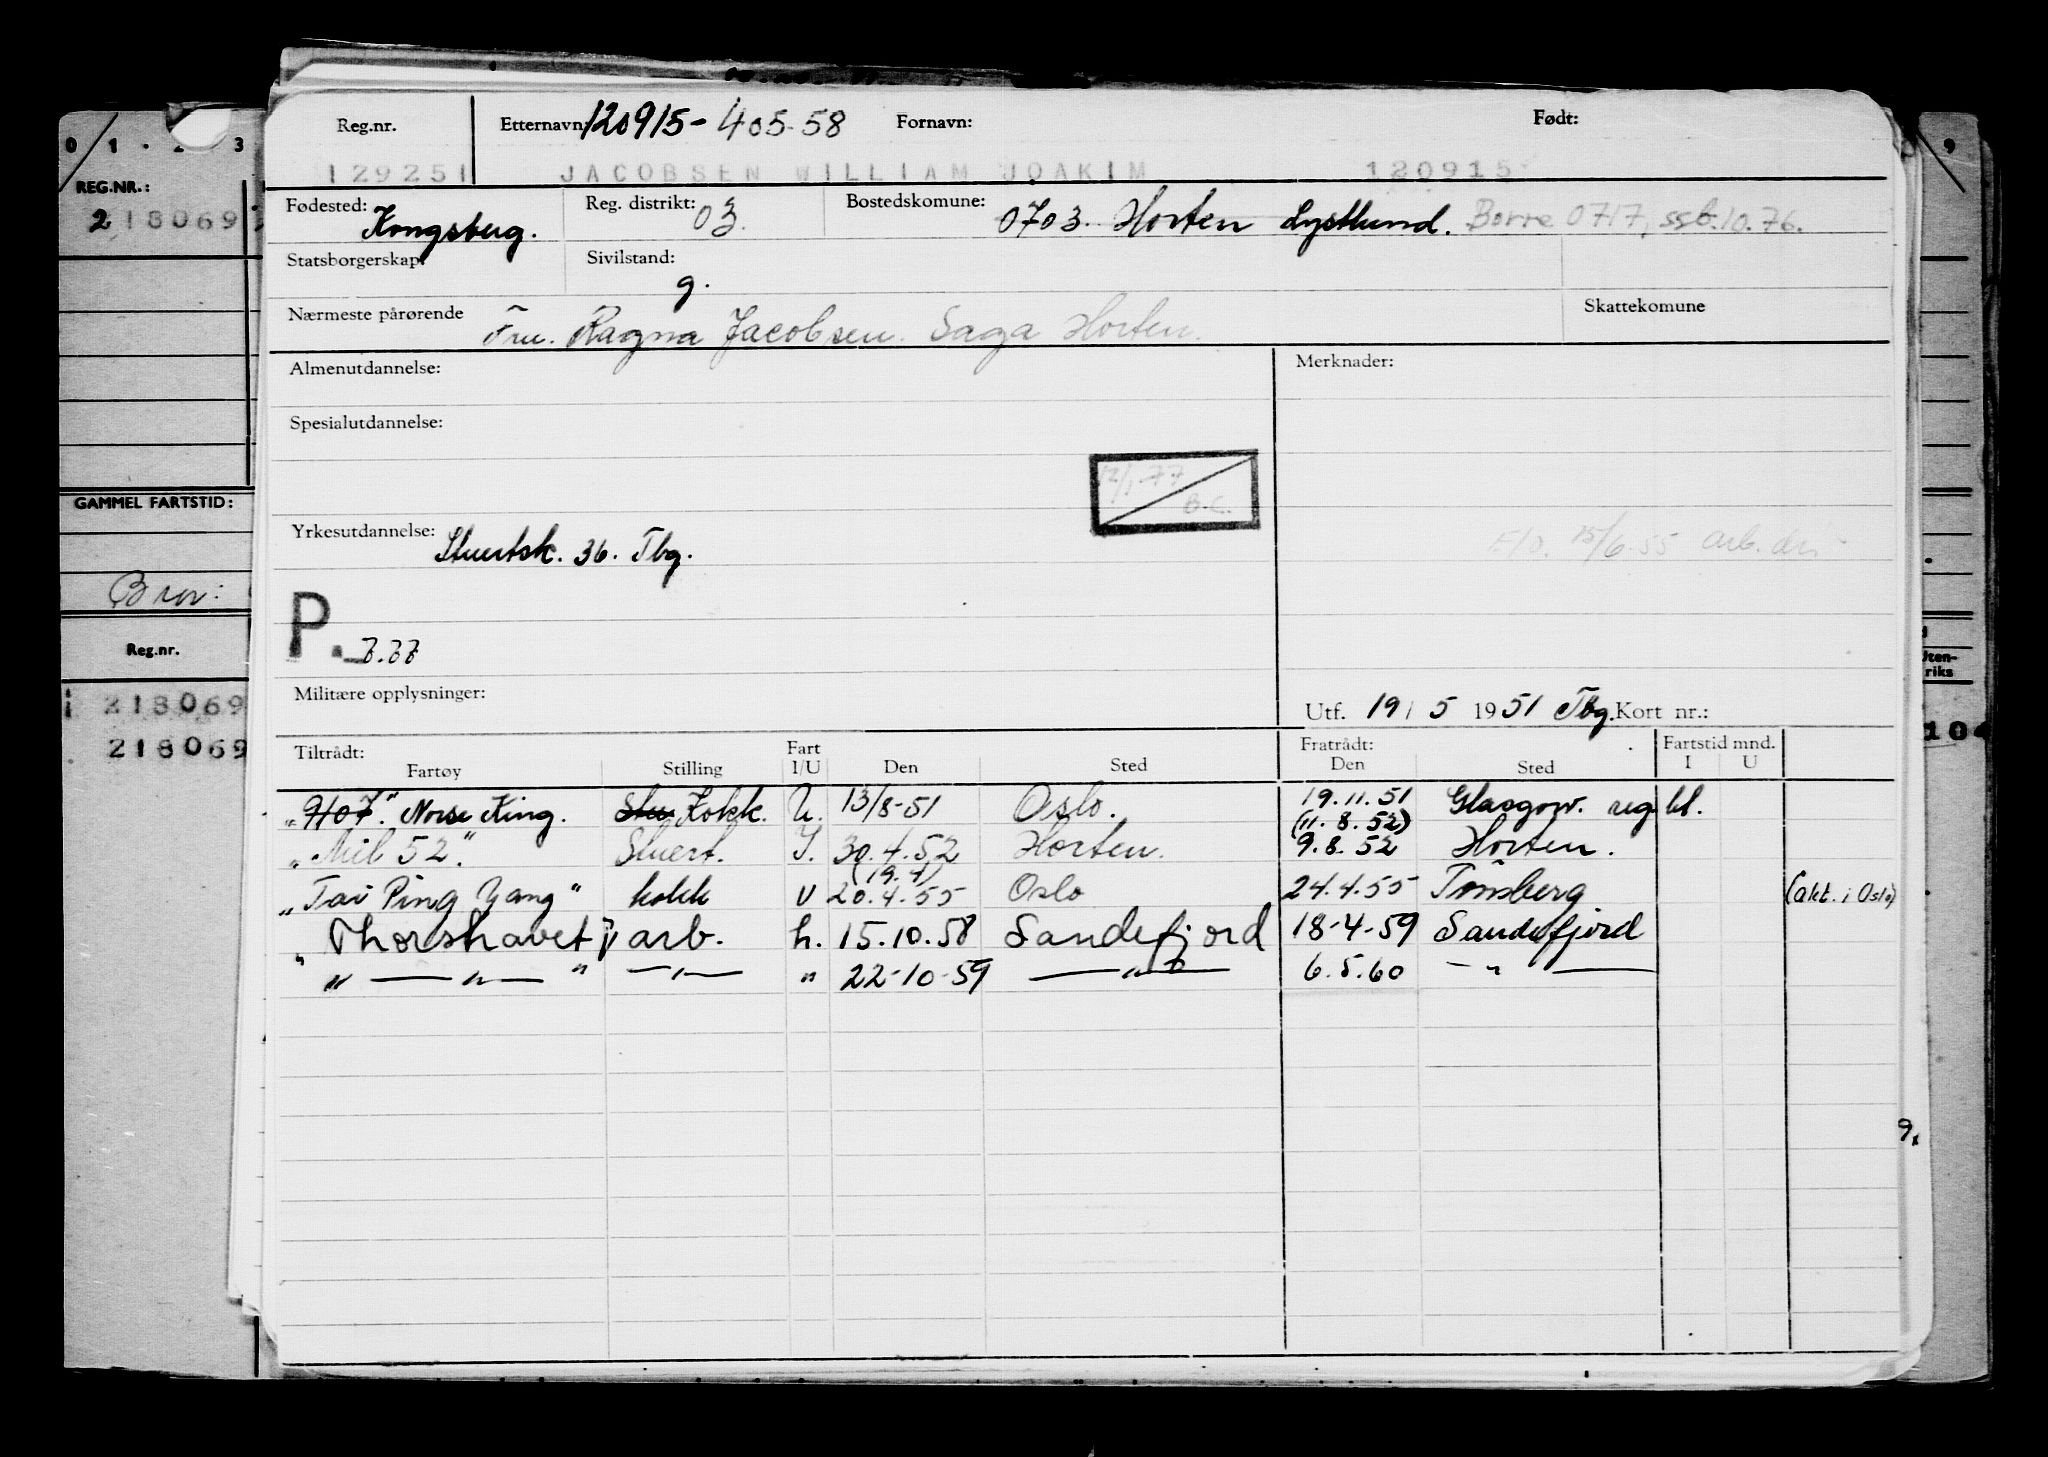 0 1 · 2 3
REG.NR.:
2 218069
GAMMEL FARTSTID:
Brev:
Reg.nr.
218069
218069
Reg.nr. Etternavn: 120915-405-58 Fornavn: Født:
129251 JACOBSEN WILLIAM JOAKIM 120915
Fødested: Kongsberg. Reg. distrikt: 03. Bostedskomune: 0703. Horten Lystlund. Borre 0717, ssb. 10.76.
Statsborgerskap: Sivilstand: g.
Nærmeste pårørende Fru. Ragna Jacobsen. Saga Horten. Skattekomune
Almenutdannelse: Merknader:
Spesialutdannelse:
12/1-77
B.C.
Yrkesutdannelse: Stuertsk. 36. Tbg. E/O. 15/6-55 arb. dir
P. 7.77
Militære opplysninger: Utf. 19/5 1951 Tbg. Kort nr.:
Tiltrådt: Fart Fratrådt: Fartstid mnd.
Fartøy Stilling I/U Den Sted Den Sted I U
"HOF". Norse King. Stu Kokk. U. 13/8-51 Oslo. 19.11.51 Glasgow. reg. bl.
(11.8.52)
"Mil 52". Stuert. I. 30.4.52 Horten. 9.8.52 Horten.
(19.4)
"Tai Ping Yang" kokk U 20.4.55 Oslo 24.4.55 Tønsberg (akt. i Oslo)
"Thorshavet" arb. h. 15.10.58 Sandefjord 18-4-59 Sandefjord
" — " — " — " — " 22-10-59 — " — 6.5.60 — " —
9
Uten-
riks
104